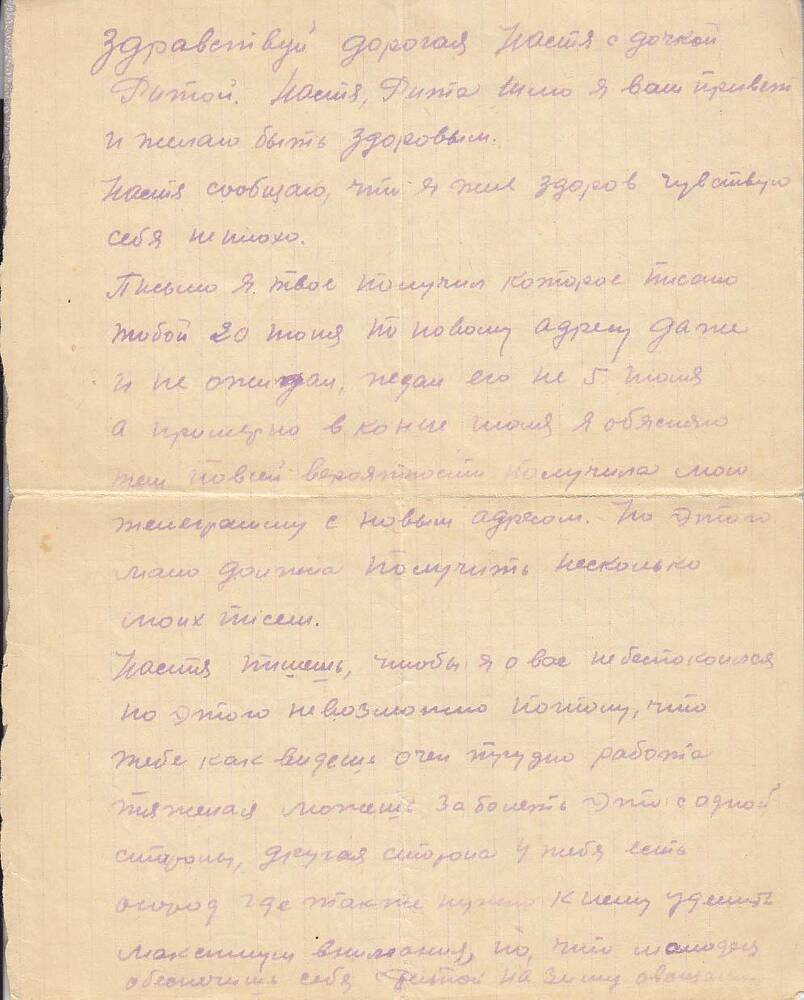 Здравствуй дорогая Настя с дочкой
Ритой. Настя, Рита шлю я вам привет
и желаю быть здоровым.
Настя сообщаю, что я жив здоров чувствую
себя неплохо.
Письмо я твое получил которое писано
тобой 20 июня по новому адресу даже
и не ожидал, ждал его не 5 июля
а примерно в конце июля я обясняю
тем повсей вероятности получила мою
телеграмму с новым адресом. Но этого
мало должна получить несколько
моих писем.
Настя пишешь, чтобы я о вас небеспокоился
но этого невозможно потому, что
тебе как видешь очен трудно работа
тяжелая можешь заболеть это с одной
стороны, другая сторона у тебя есть
огород где также нужно к нему уделить
максимум внимания, но, что молодец
обеспечишь себя с Ритой на зиму овощами